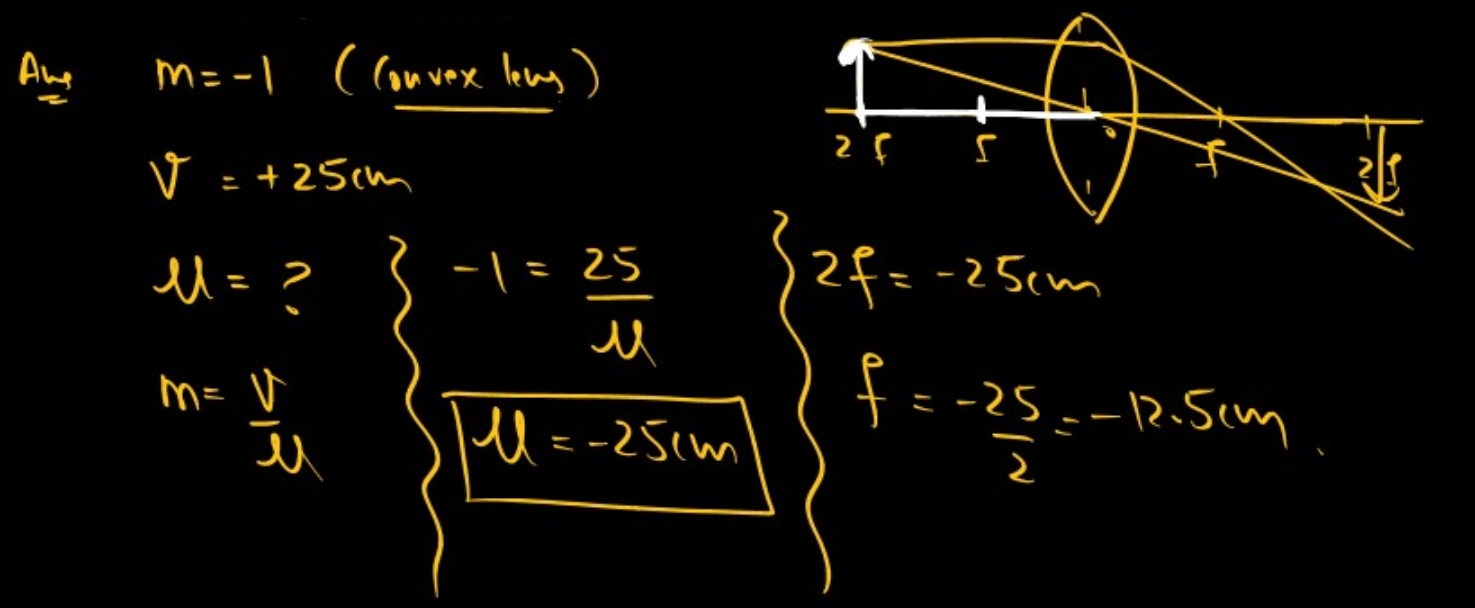 Ans m = -1 (Convex lens)
v = +25cm
u = ?
m = v/u
-1 = 25/u
u = -25cm
2f = -25cm
f = -25/2 = -12.5cm.
2f f o f 2f